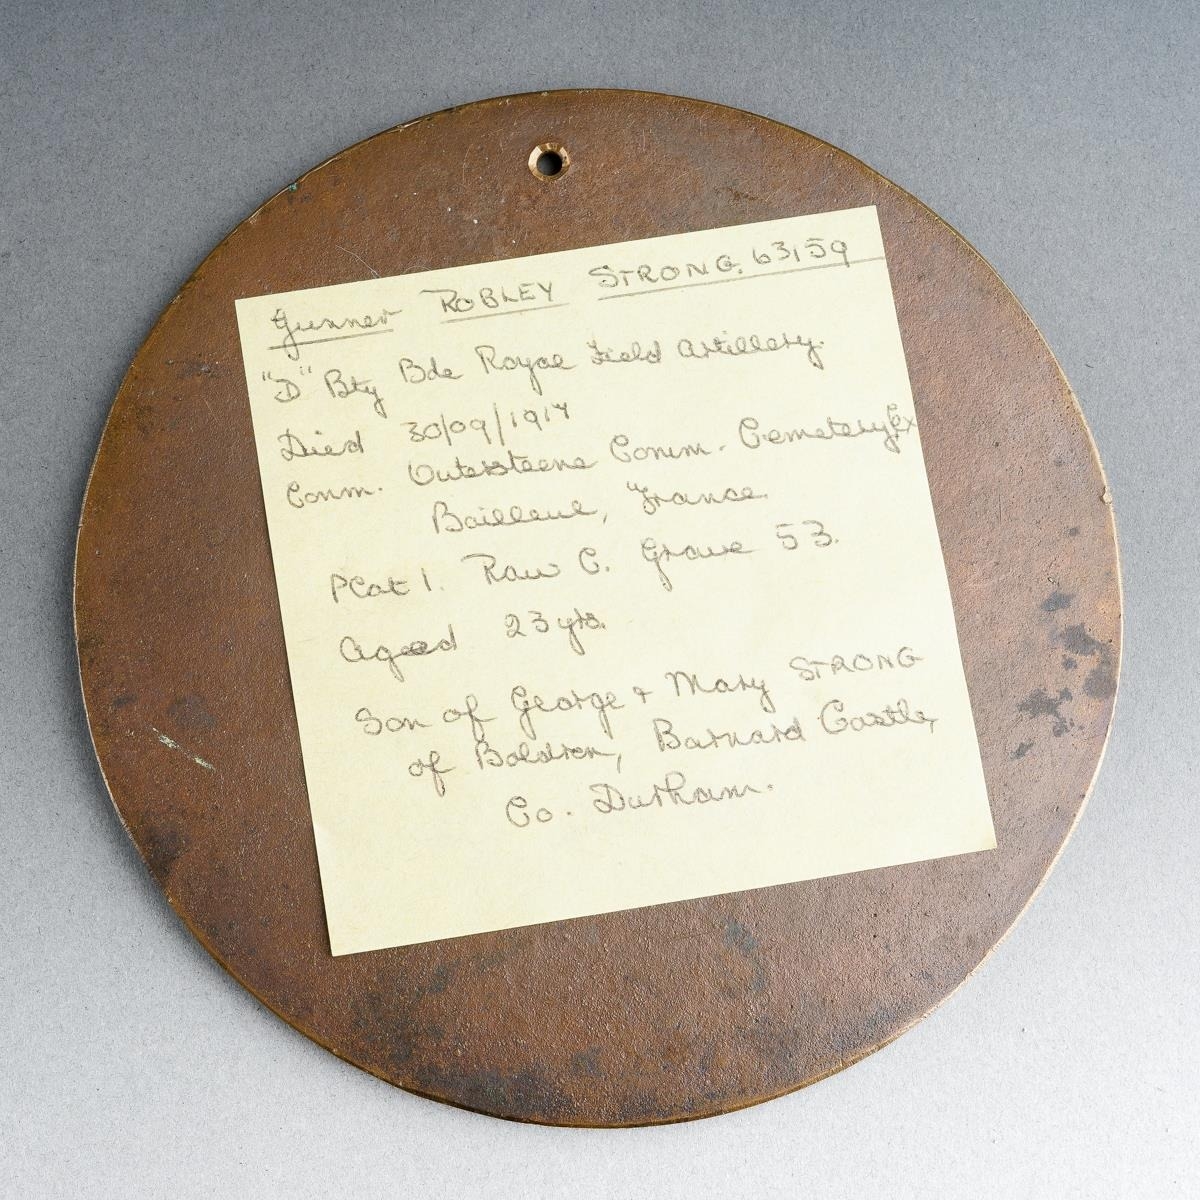 Gunner ROBLEY STRONG. 63159
"D" Bty Bde Royal Field Artillery.
Died 30/09/1917
Comm. Outersteene Comm. Cemetery Ex
Bailleul, France.
Plot 1. Row C. Grave 53.
Aged 23 yrs.
Son of George & Mary STRONG
of Boldron, Barnard Castle,
Co. Durham.